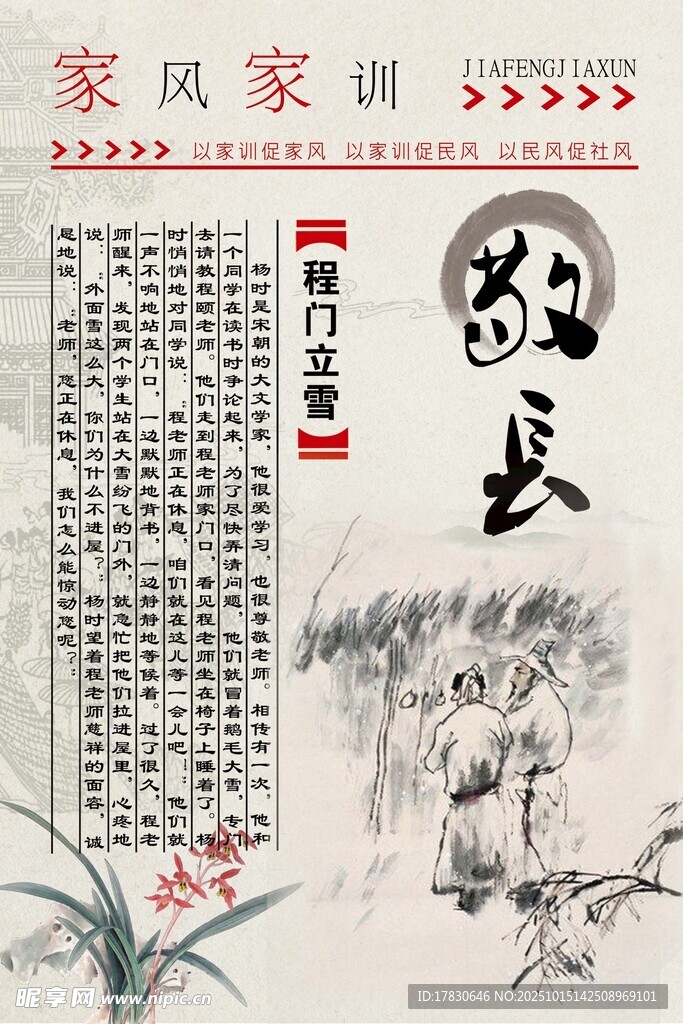 家风家训
JIAFENGJIAXUN
以家训促家风 以家训促民风 以民风促社风
敬长
程门立雪
杨时是宋朝的大文学家，他很爱学习，也很尊敬老师。相传有一次，他和
一个同学在读书时争论起来，为了尽快弄清问题，他们就冒着鹅毛大雪，专门
去请教程颐老师。他们走到程老师家门口，看见程老师坐在椅子上睡着了。杨
时悄悄地对同学说：“程老师正在休息，咱们就在这儿等一会儿吧！”他们就
一声不响地站在门口，一边默默地背书，一边静静地等候着。过了很久，程老
师醒来，发现两个学生站在大雪纷飞的门外，就急忙把他们拉进屋里，心疼地
说：“外面雪这么大，你们为什么不进屋？”杨时望着程老师慈祥的面容，诚
恳地说：“老师，您正在休息，我们怎么能惊动您呢？”
昵享网 www.nipic.cn
ID:17830646 NO:20251015142508969101